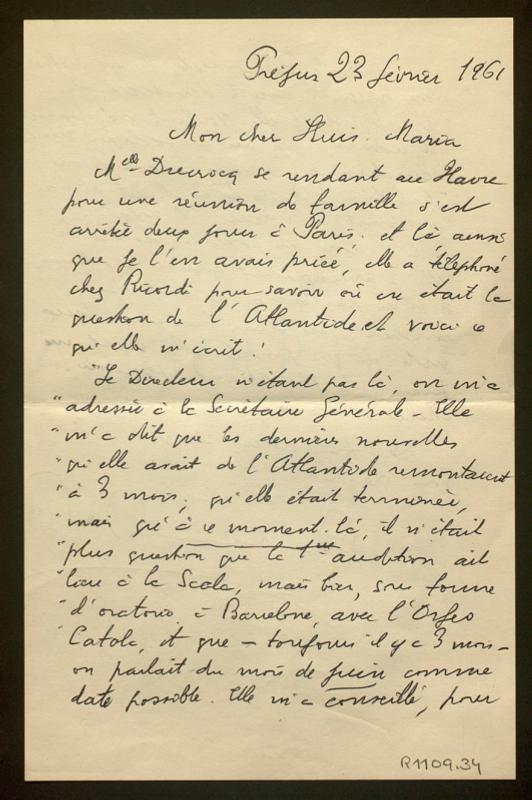 Fréjus 23 février 1961
Mon cher Lluis. Maria
Melle Ducrocq se rendant au Havre
pour une réunion de famille s'est
arrêtée deux jours à Paris. et là, ainsi
que je l'en avais priée, elle a téléphoné
chez Ricordi pour savoir où en était la
question de l'Atlantide et voici ce
qu'elle m'écrit!
"Le Directeur n'étant pas là, on m'a
"adressée à la Secrétaire Générale - Elle
"m'a dit que les dernières nouvelles
"qu'elle avait de l'Atlantide remontaient
"à 3 mois; qu'elle était terminée,
"mais qu'à ce moment-là, il n'était
"plus question que la 1ère audition ait
"lieu à la Scala, mais bien, sous forme
"d'oratorio à Barcelone, avec l'Orfeo
"Catala, et que - toujours il y a 3 mois -
on parlait du mois de juin comme
date possible. Elle m'a conseillé, pour
R1109.34